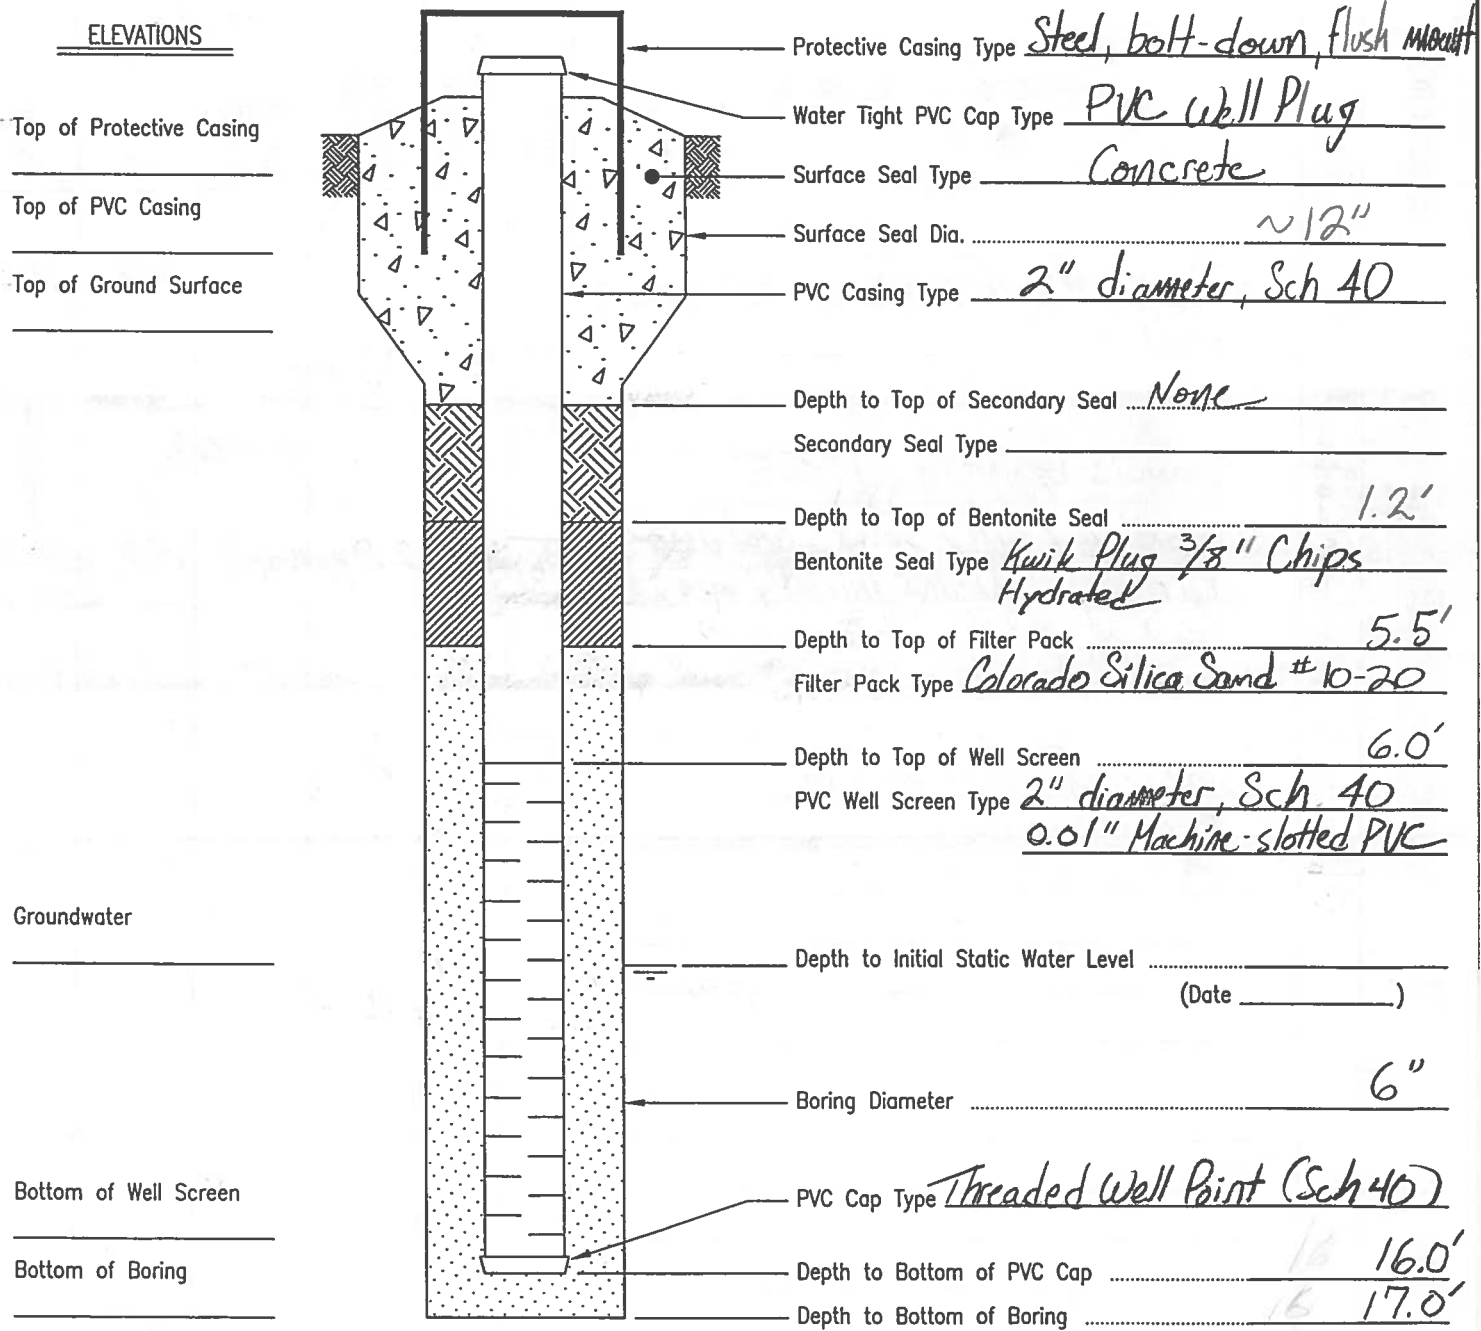 ELEVATIONS
Top of Protective Casing
Top of PVC Casing
Top of Ground Surface
Groundwater
Bottom of Well Screen
Bottom of Boring
Protective Casing Type Steel, bolt-down, flush mount
Water Tight PVC Cap Type PVC Well Plug
Surface Seal Type Concrete
Surface Seal Dia. ~12"
PVC Casing Type 2" diameter, Sch 40
Depth to Top of Secondary Seal None
Secondary Seal Type
Depth to Top of Bentonite Seal 1.2'
Bentonite Seal Type Kwik Plug 3/8" Chips
Hydrated
Depth to Top of Filter Pack 5.5'
Filter Pack Type Colorado Silica Sand #10-20
Depth to Top of Well Screen 6.0'
PVC Well Screen Type 2" diammeter, Sch. 40
0.01" Machine-slotted PVC
Depth to Initial Static Water Level
(Date )
Boring Diameter 6"
PVC Cap Type Threaded Well Point (Sch 40)
Depth to Bottom of PVC Cap 16.0'
Depth to Bottom of Boring 17.0'